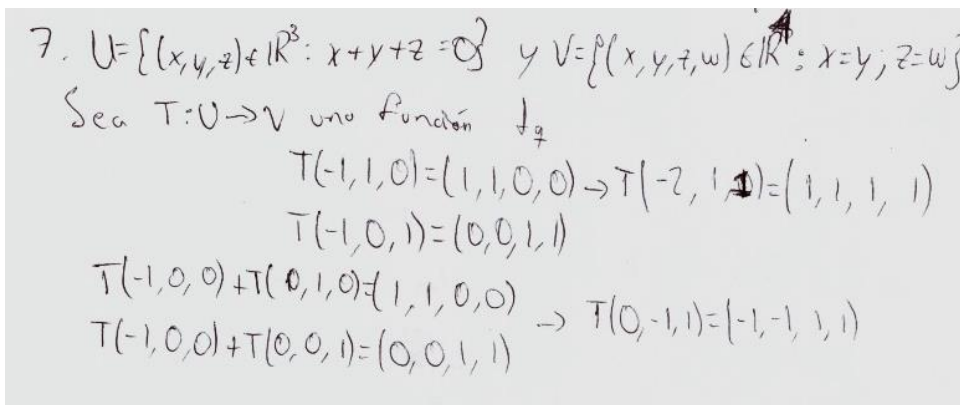 7. U={(x,y,z)∈ℝ³: x+y+z=0} y V={(x,y,z,w)∈ℝ⁴: x=y; z=w}
Sea T:U→V una función tq
T(-1,1,0)=(1,1,0,0)→T(-2,1,1)=(1,1,1,1)
T(-1,0,1)=(0,0,1,1)
T(-1,0,0)+T(0,1,0)=(1,1,0,0)
→ T(0,-1,1)=(-1,-1,1,1)
T(-1,0,0)+T(0,0,1)=(0,0,1,1)